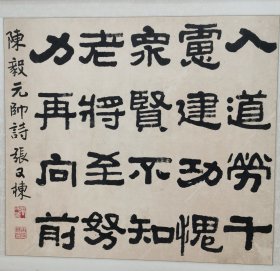 入道勞千
慮建功愧
衆賢不知
老將至努
力再向前
陳毅元帥詩張又棟